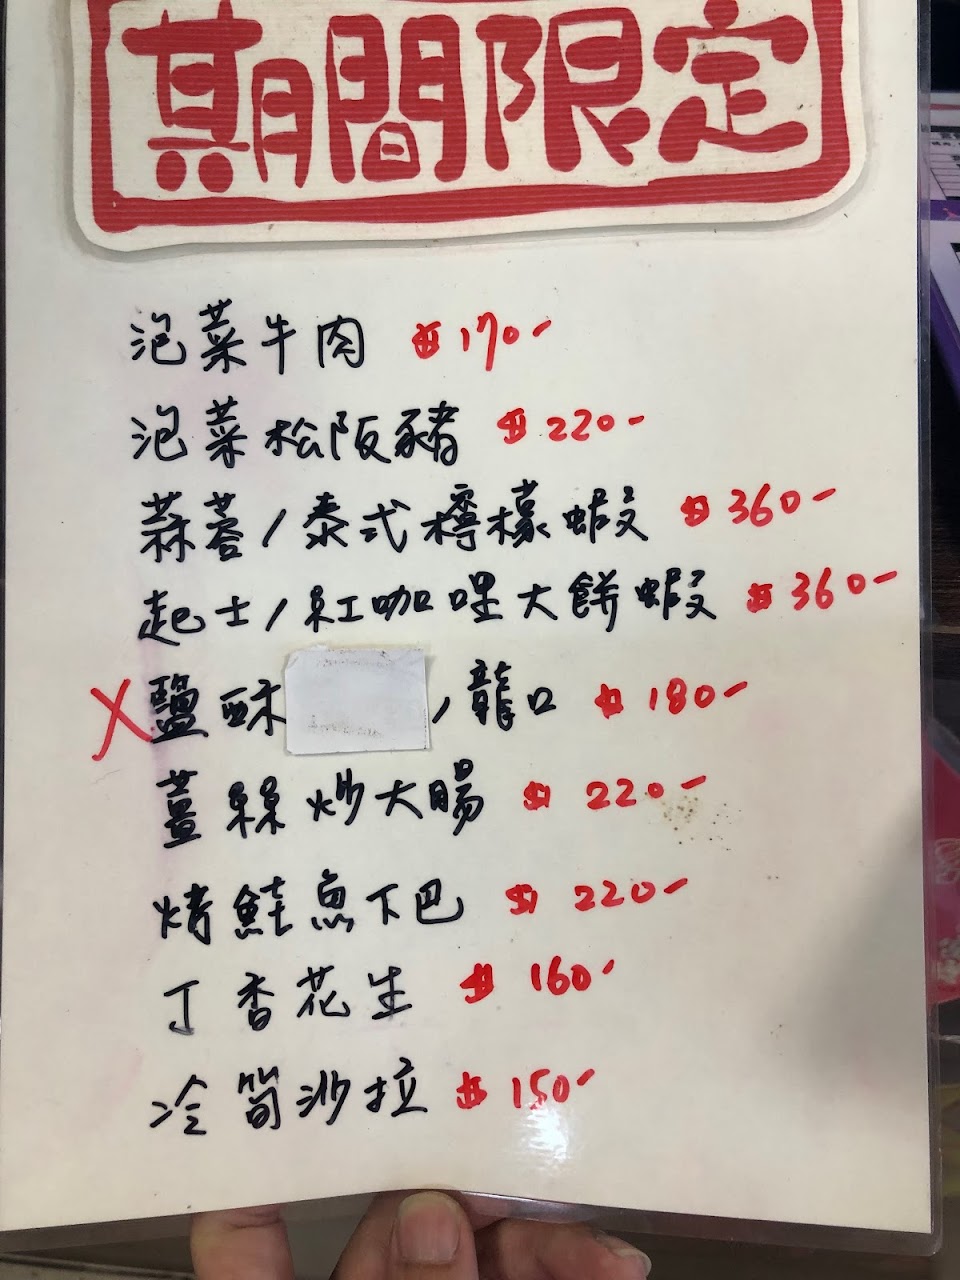 期間限定
泡菜牛肉 $170-
泡菜松阪豬 $220-
蒜蓉/泰式檸檬蝦 $360-
起士/紅咖哩大餅蝦 $360-
X 鹽酥 /龍口 $180-
薑絲炒大腸 $220-
烤鮭魚下巴 $220-
丁香花生 $160-
冷筍沙拉 $150-